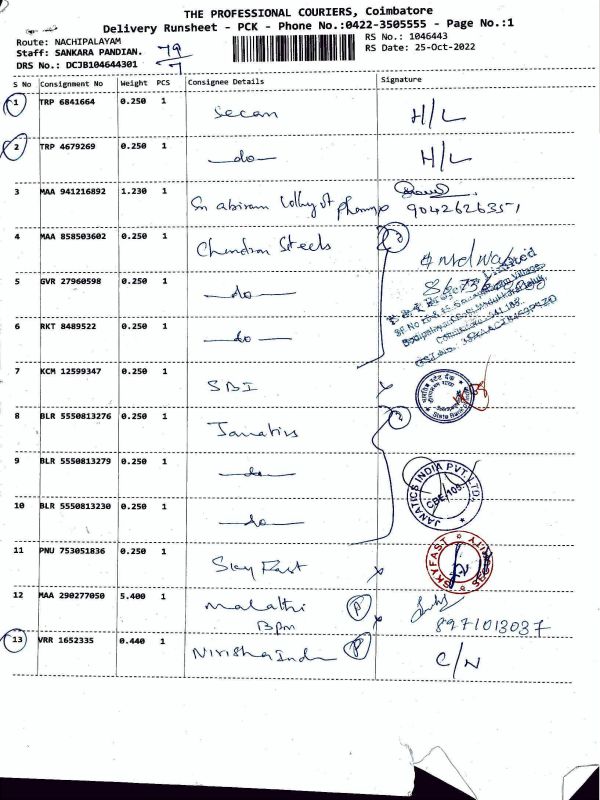 THE PROFESSIONAL COURIERS, Coimbatore
Delivery Runsheet - PCK - Phone No.:0422-3505555 - Page No.:1
Route: NACHIPALAYAM
Staff: SANKARA PANDIAN.
DRS No.: DCJB104644301
79
7
RS No.: 1046443
RS Date: 25-Oct-2022
S No Consignment No Weight PCS Consignee Details Signature
1 TRP 6841664 0.250 1 Secan H/L
2 TRP 4679269 0.250 1 do H/L
3 MAA 941216892 1.230 1 Sri abiram 9042626351
4 MAA 858503602 0.250 1 Chendran Steels
5 GVR 27960598 0.250 1 do
6 RKT 8489522 0.250 1 do
7 KCM 12599347 0.250 1 SBI
State Bank
8 BLR 5550813276 0.250 1 Janatics
9 BLR 5550813279 0.250 1 do
JANATICS INDIA PVT. LTD.
CBE
10 BLR 5550813230 0.250 1 do
11 PNU 753051836 0.250 1 Sky Fast
SKYFAST SECURITY
12 MAA 290277050 5.400 1 Malathi P
Bpm 8971013037
13 VRR 1652335 0.440 1 P C/N